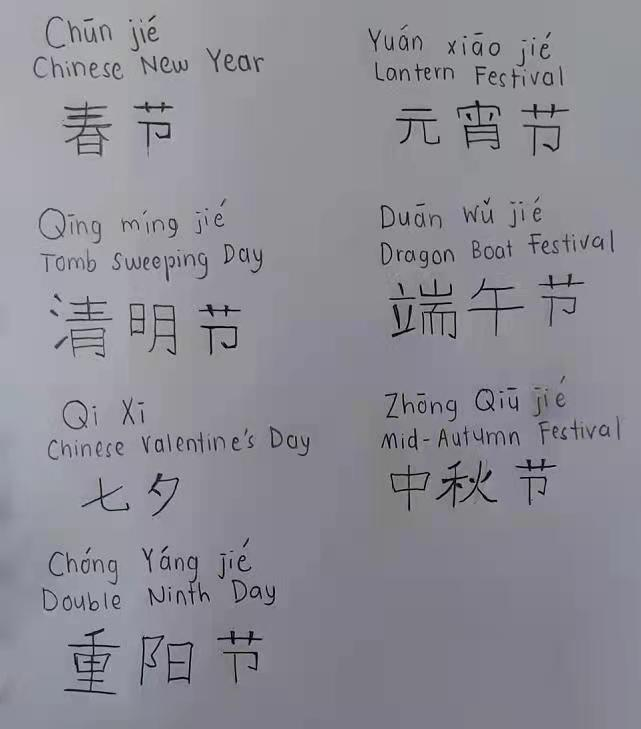 Chūn jié
Chinese New Year
春节
Yuán xiāo jié
Lantern Festival
元宵节
Qīng míng jié
Tomb Sweeping Day
清明节
Duān wǔ jié
Dragon Boat Festival
端午节
Qi Xī
Chinese Valentine's Day
七夕
Zhōng Qiū jié
Mid-Autumn Festival
中秋节
Chóng Yáng jié
Double Ninth Day
重阳节